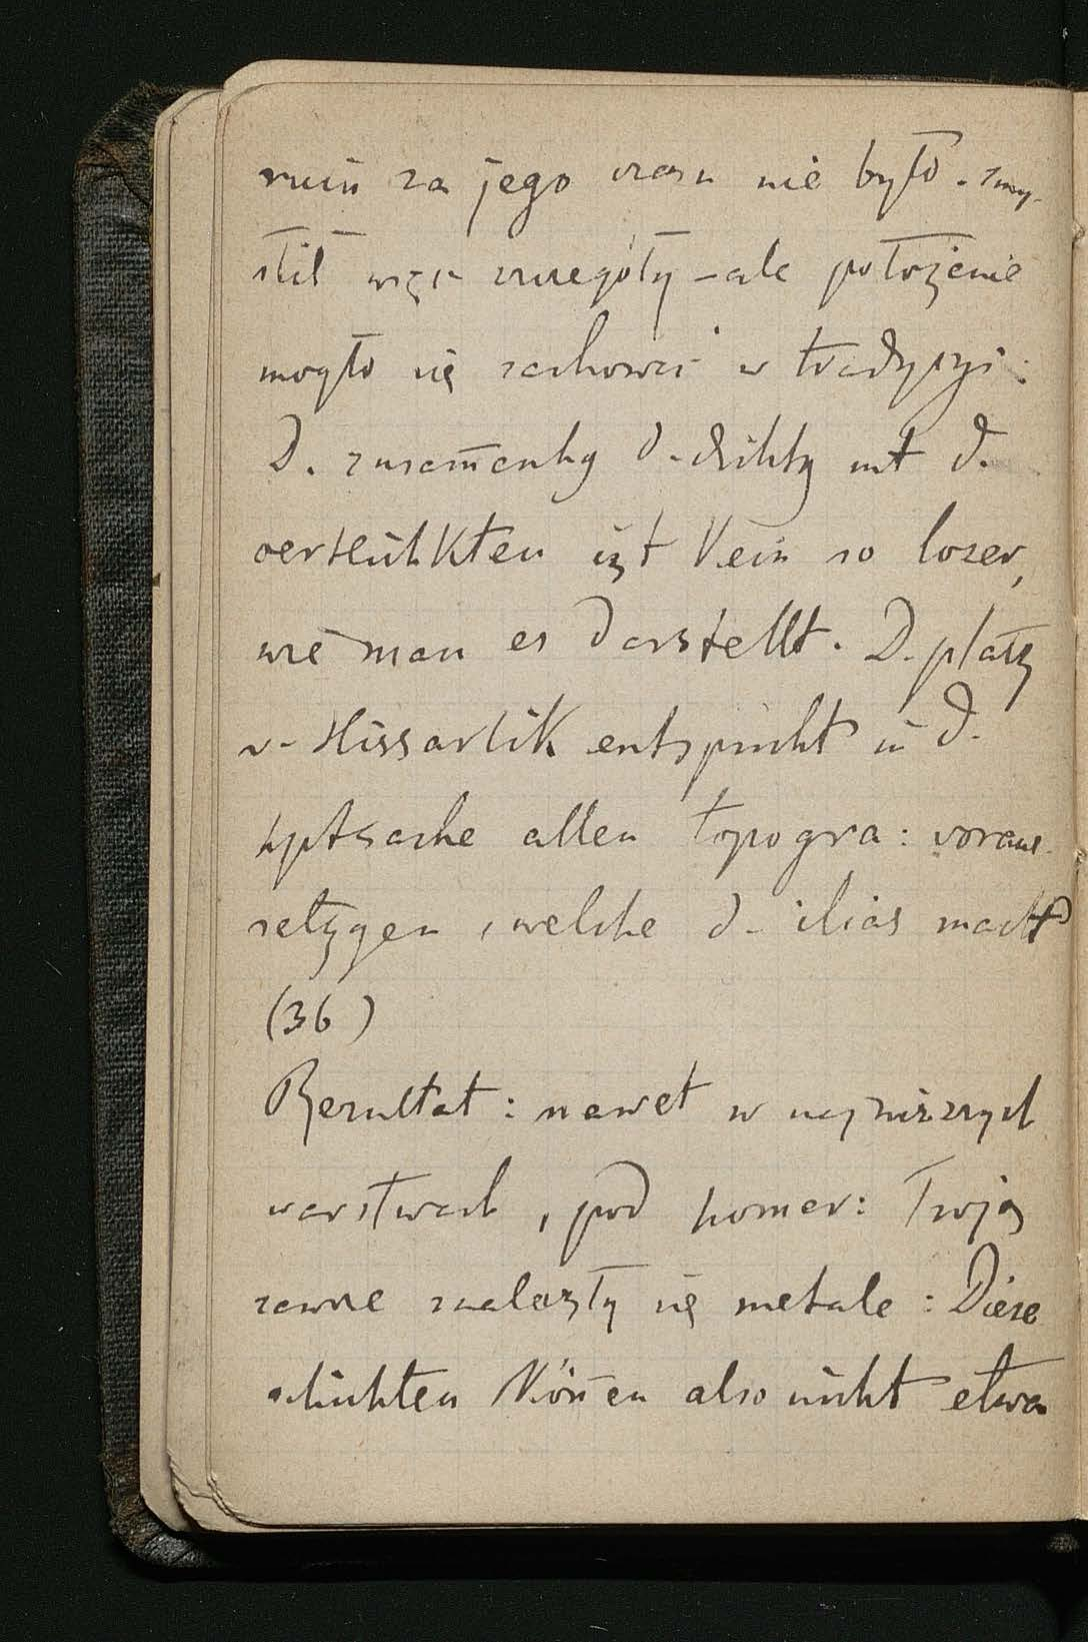 ruin za jego czasu nie było. Zmy-
ślił więc szczegóły – ale położenie
mogło się zachować w tradycyi:
D. zusam̄enhg d. dichtg mt d.
oertlichkten ist kein so loser,
wie man es darstellt. D. platz
v. Hissarlik entspricht in d.
hptsache allen topogra: voraus-
setzgen, welche d. ilias macht
(36)
Rezultat: nawet w najniższych
warstwach, pod homer: Troją
zawsze znalazły się metale: Diese
schichten kön̄en also nicht etwa